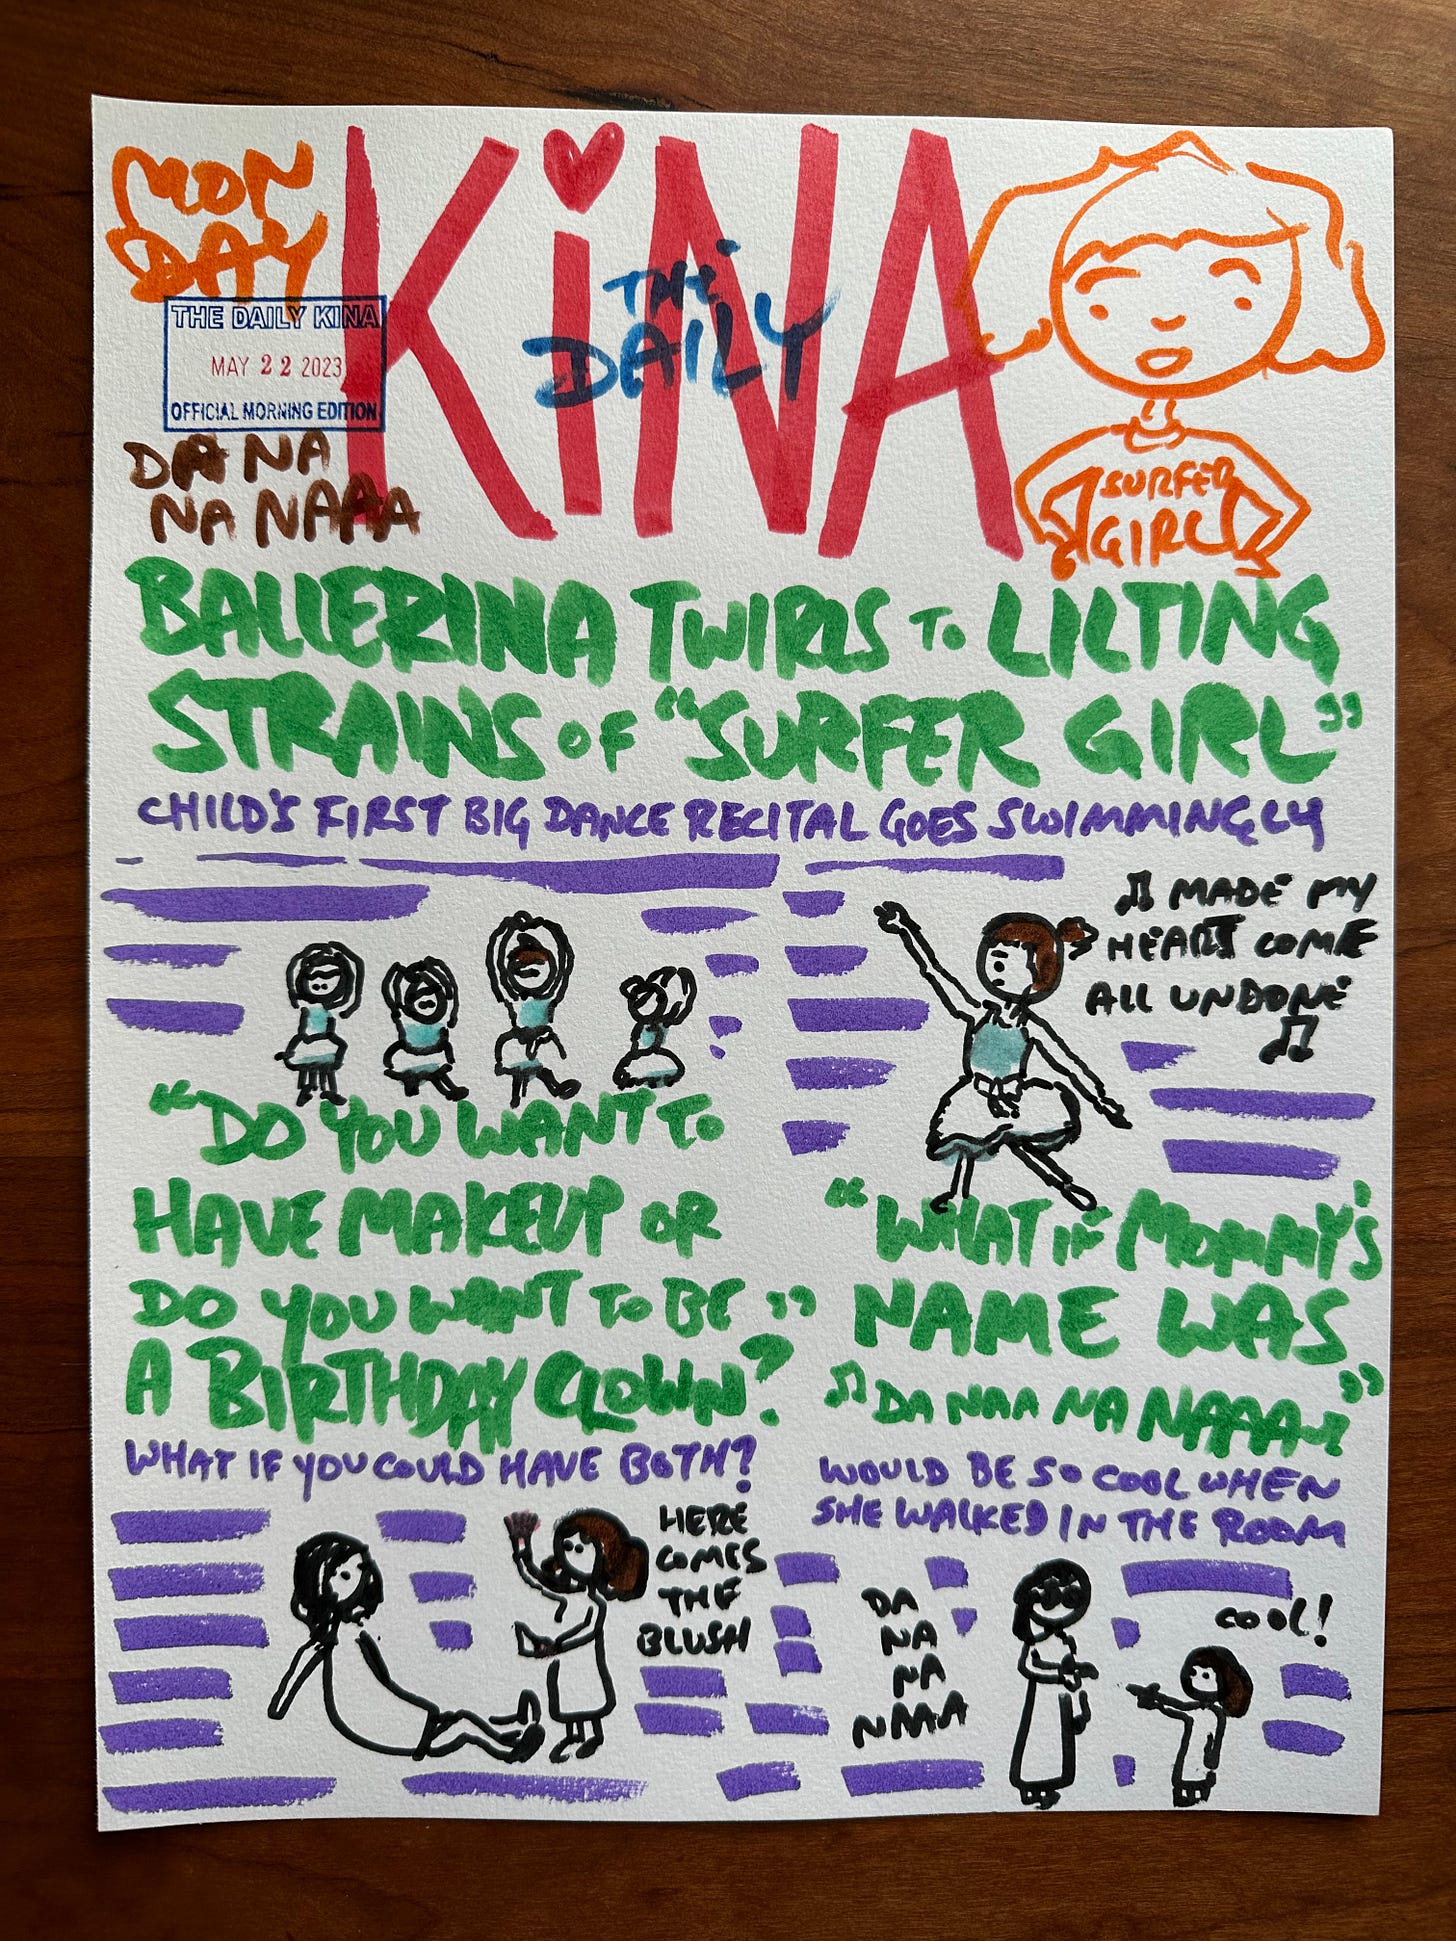 MON
DAY
KiNA
THE
DAILY
THE DAILY KINA
MAY 22 2023
OFFICIAL MORNING EDITION
DA NA
NA NAAA
SURFER
GIRL
BALLERINA TWIRLS TO LILTING
STRAINS OF "SURFER GIRL"
CHILD'S FIRST BIG DANCE RECITAL GOES SWIMMINGLY
♫ MADE MY
HEART COME
ALL UNDONE
♫
"DO YOU WANT TO
HAVE MAKEUP OR
DO YOU WANT TO BE "
A BIRTHDAY CLOWN?
WHAT IF YOU COULD HAVE BOTH?
HERE
COMES
THE
BLUSH
"WHAT IF MOMMY'S
NAME WAS
♫ DA NAA NA NAAAA♫"
WOULD BE SO COOL WHEN
SHE WALKED IN THE ROOM
DA
NA
NA
NAAA
COOL!